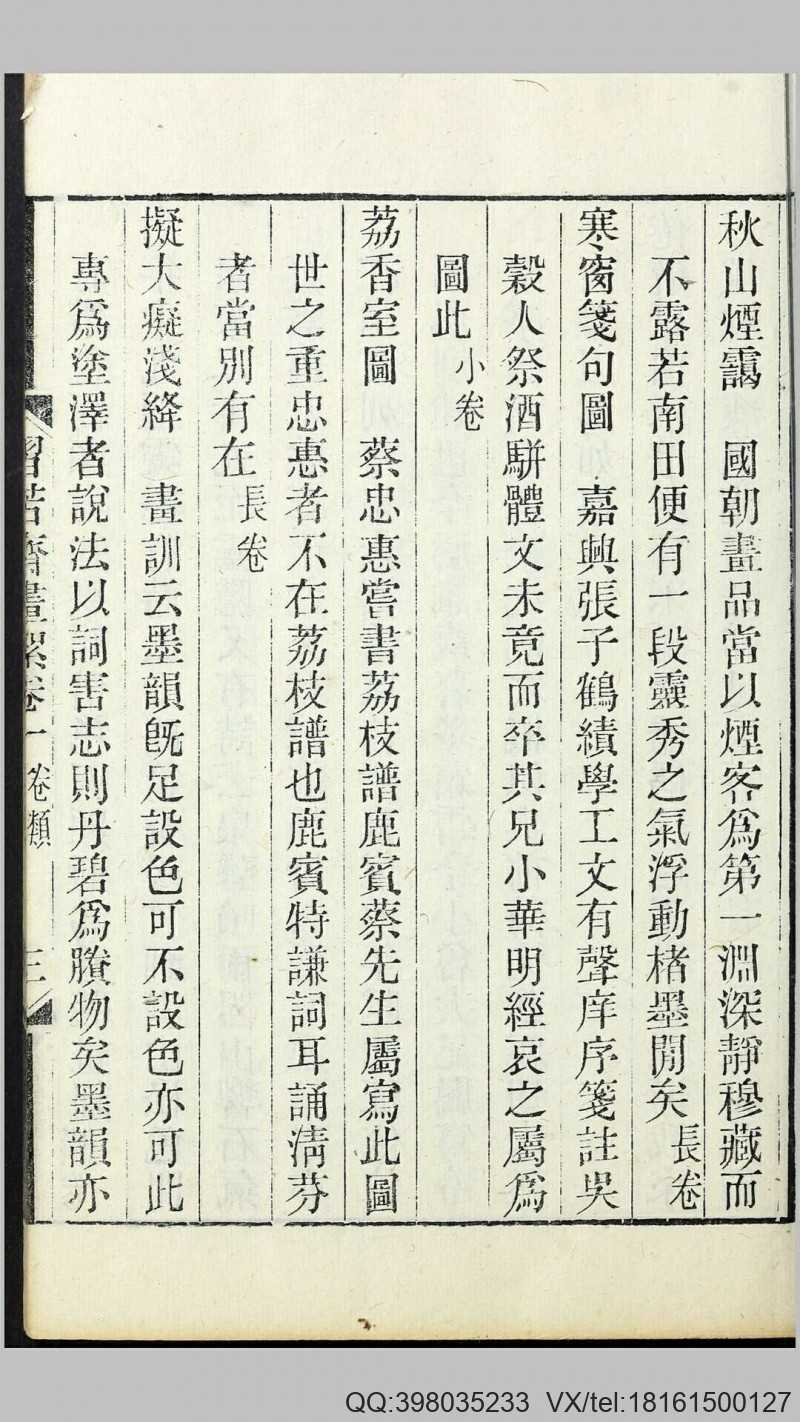 秋山煙靄　國朝畫品當以煙客爲第一淵深靜穆藏而
不露若南田便有一段靈秀之氣浮動楮墨閒矣長卷
寒窗箋句圖　嘉興張子鶴績學工文有聲庠序箋註吳
穀人祭酒駢體文未竟而卒其兄小華明經哀之屬爲
圖此小卷
荔香室圖　蔡忠惠嘗書荔枝譜鹿賓蔡先生屬寫此圖
世之重忠惠者不在荔枝譜也鹿賓特謙詞耳誦淸芬
者當別有在長卷
擬大癡淺絳　畫訓云墨韻旣足設色可不設色亦可此
專爲塗澤者說法以詞害志則丹碧爲賸物矣墨韻亦
習苦齋畫絮卷一　卷類　三
QQ:398035233 VX/tel:18161500127